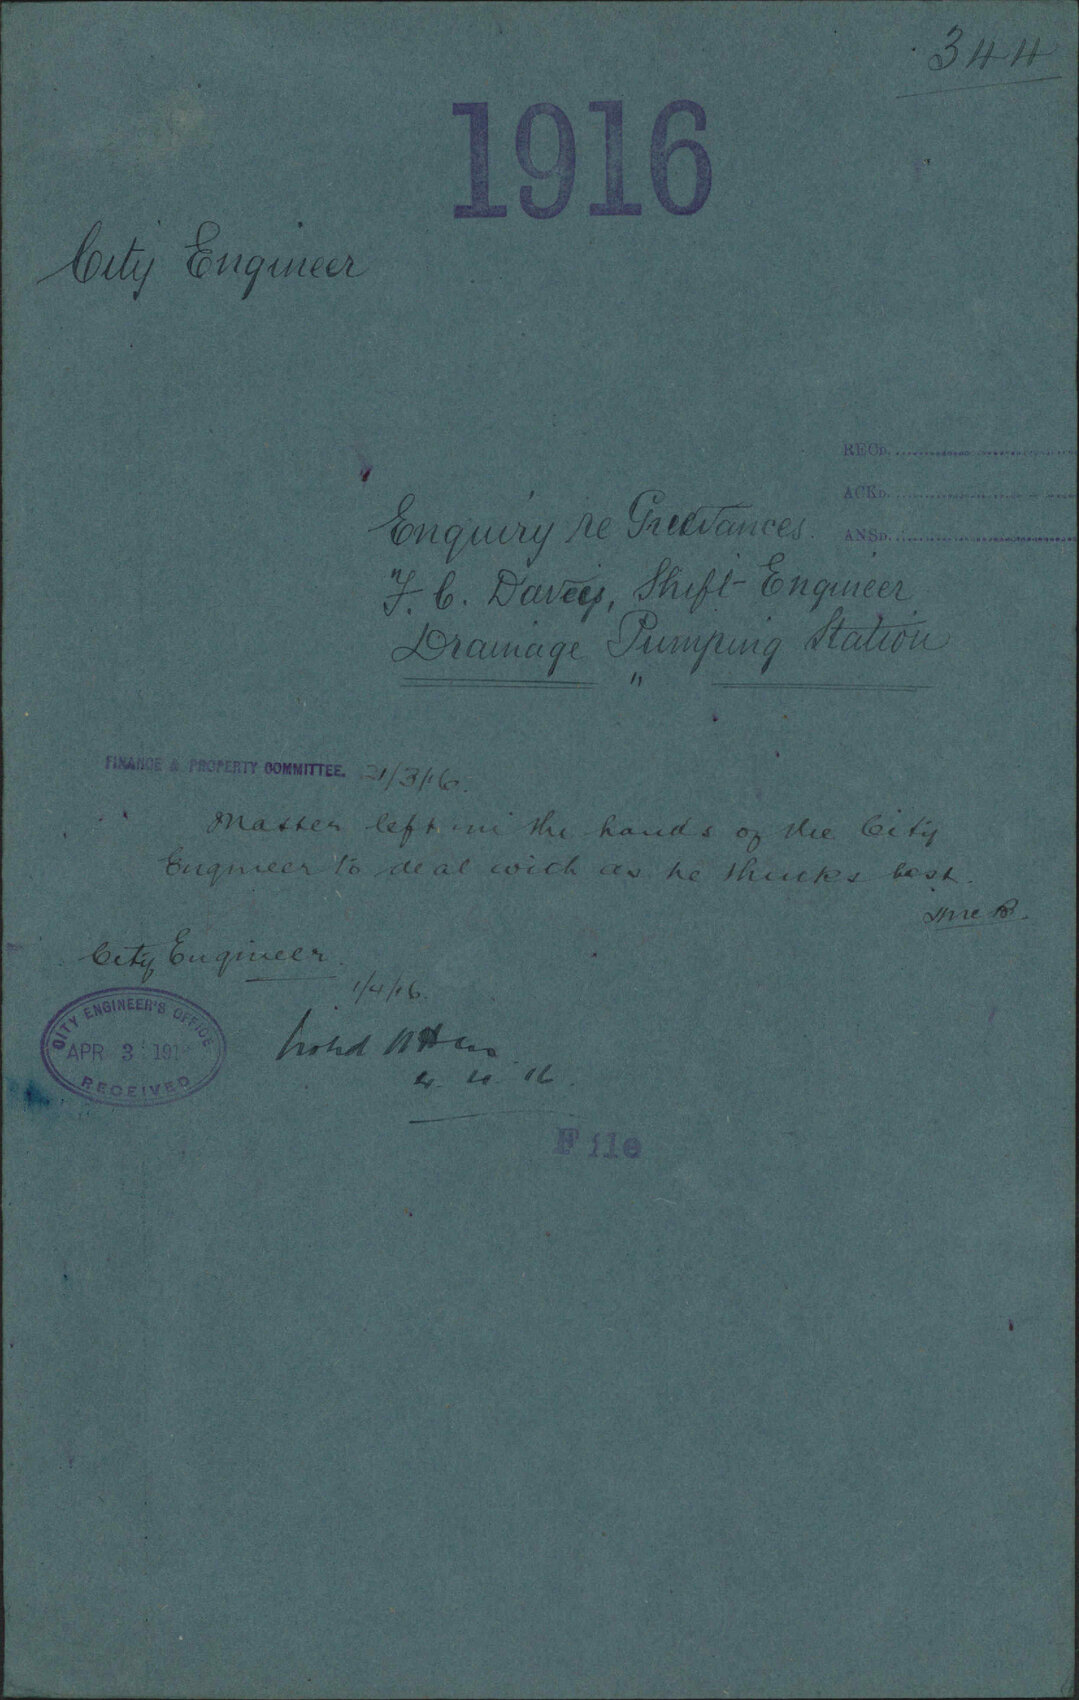 344
1916
City Engineer
RECD.
ACKD.
ANSD.
Enquiry re Grievances.
F. C. Davies, Shift-Engineer
Drainage Pumping Station
"
FINANCE & PROPERTY COMMITTEE. 21/3/16.
Matter left in the hands of the City
Engineer to deal with as he thinks best.
City Engineer.
1/4/16.
CITY ENGINEER'S OFFICE
APR 3 191
RECEIVED
Noted
4. 4. 16.
File